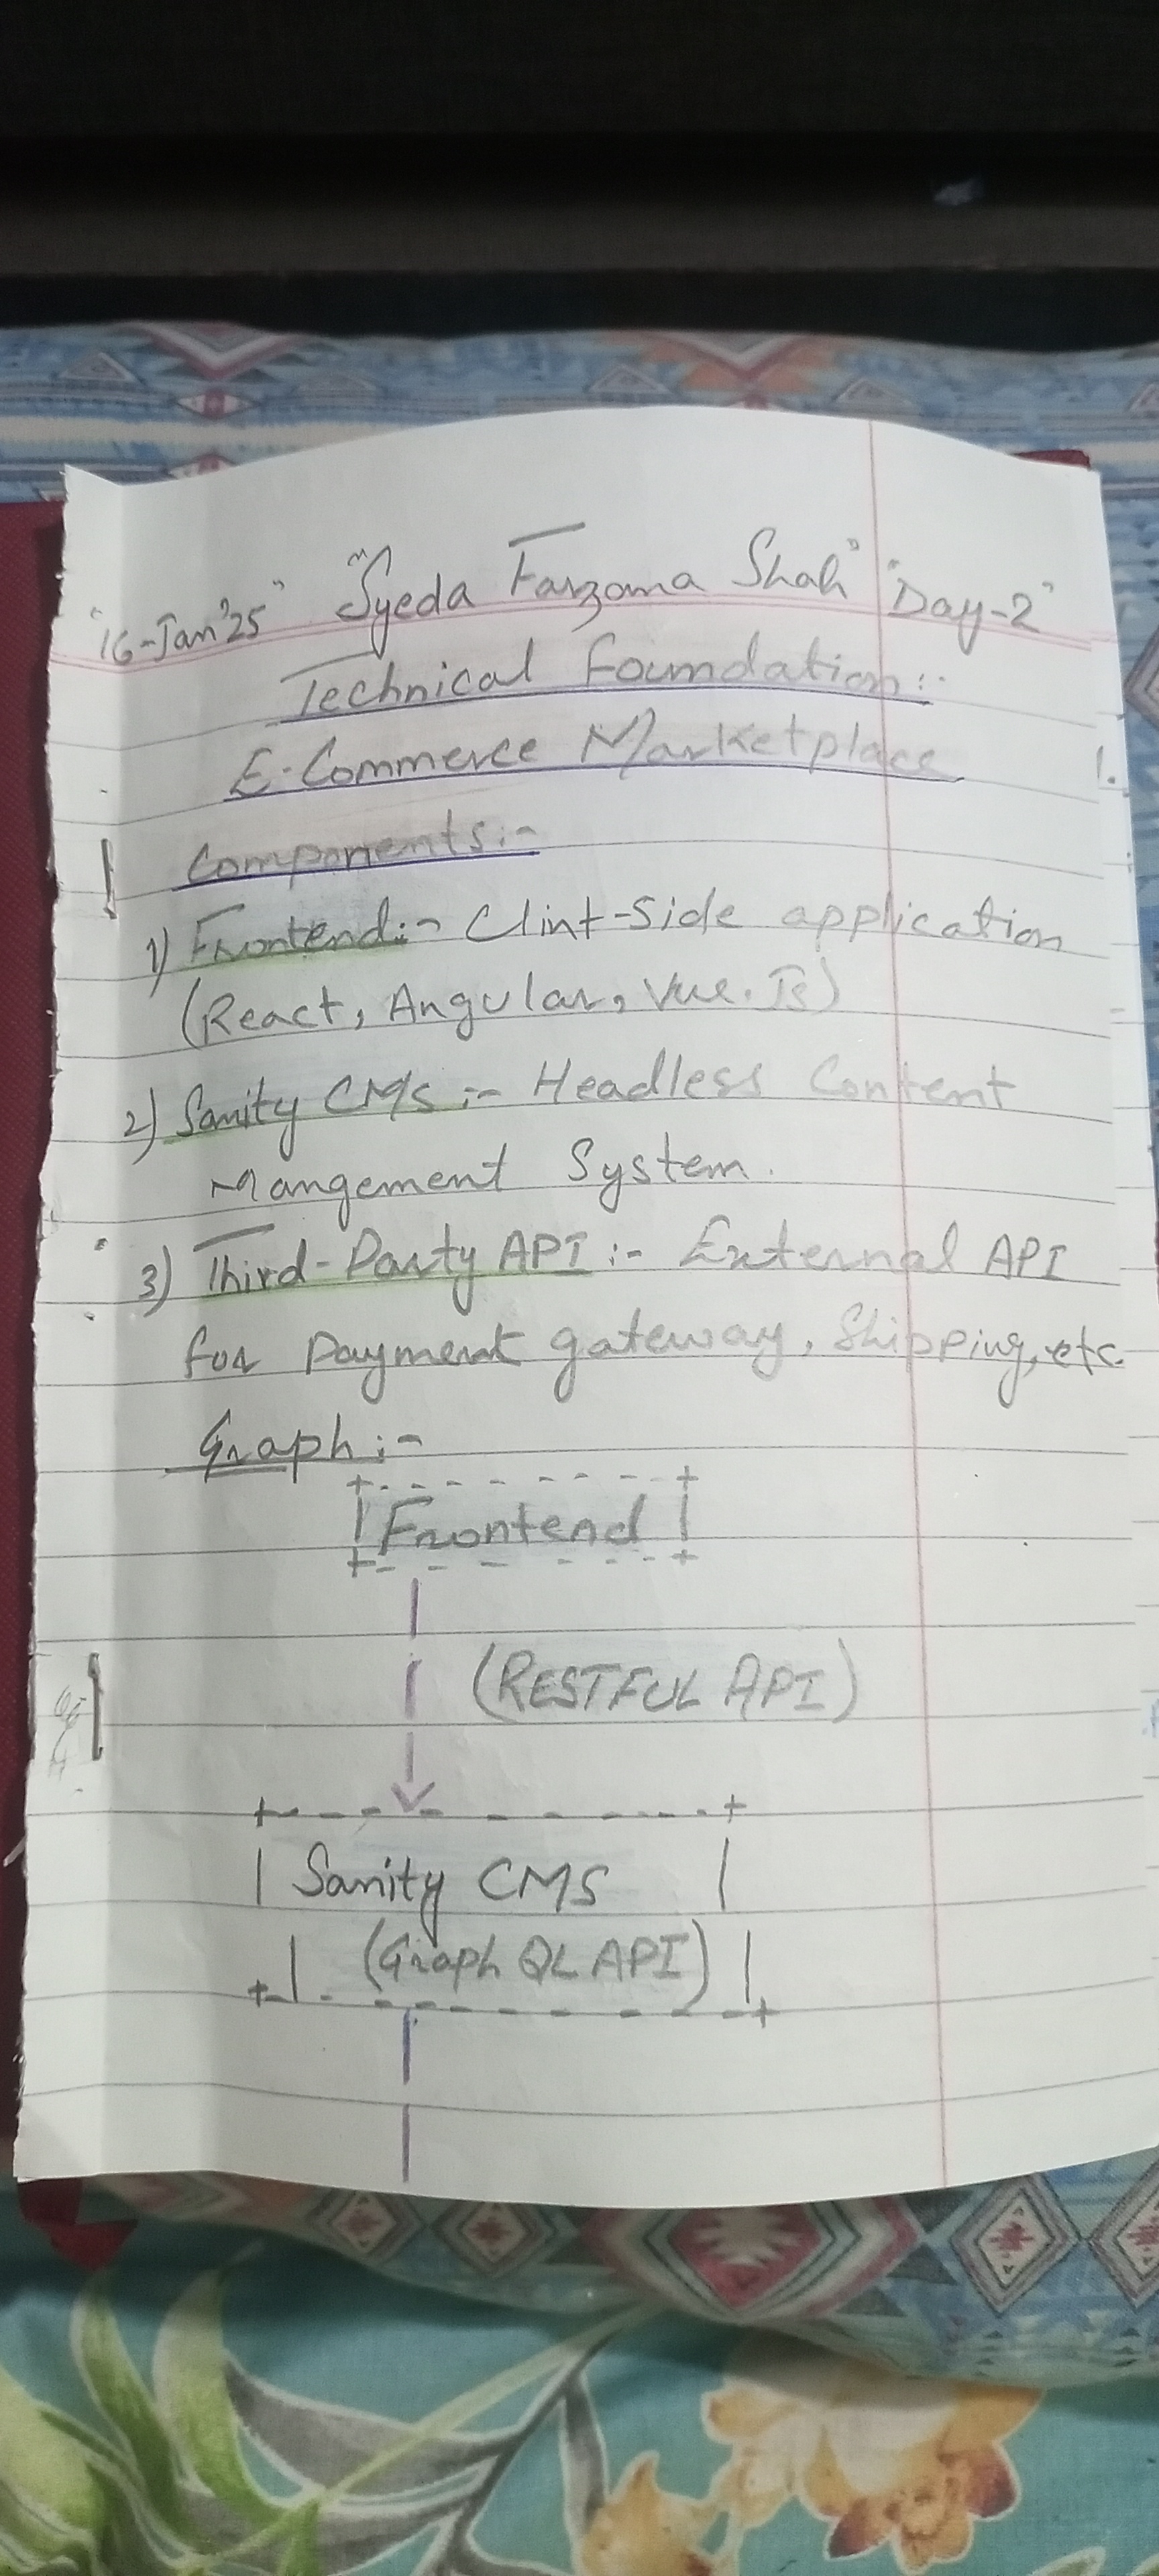 "16-Jan'25" "Syeda Farzama Shah" "Day-2"
Technical Foundation:-
E-Commerce Marketplace
Components:-
1) Frontend:- Clint-Side application
(React, Angular, Vue.Js)
2) Sanity CMS:- Headless Content
Mangement System.
3) Third-Party API:- External API
for payment gateway, Shipping, etc.
Graph:-
Frontend
(RESTFUL API)
Sanity CMS
(Graph QL API)